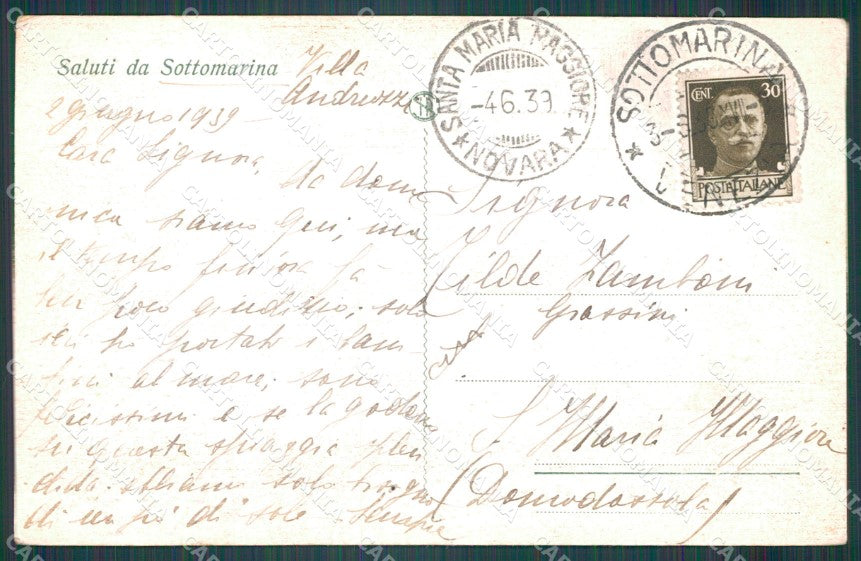 Saluti da Sottomarina Villa
Andreozzi
2 giugno 1939
Cara Signora, da dome
nica siamo qui, ma
il tempo finora fa
ben poco giudizio; solo
ieri ho portato i bam
bini al mare; sono
felicissimi e se la godono
su questa spiaggia splen
dida. Abbiamo solo bisogno
di un po' di sole
SANTA MARIA MAGGIORE
-4.6.39
★ NOVARA ★
SOTTOMARINA
CENT. 30
POSTE ITALIANE
Signora
Gilde Zamboni
Grassini
S. Maria Maggiore
(Domodossola)
CARTOLINOMANIA